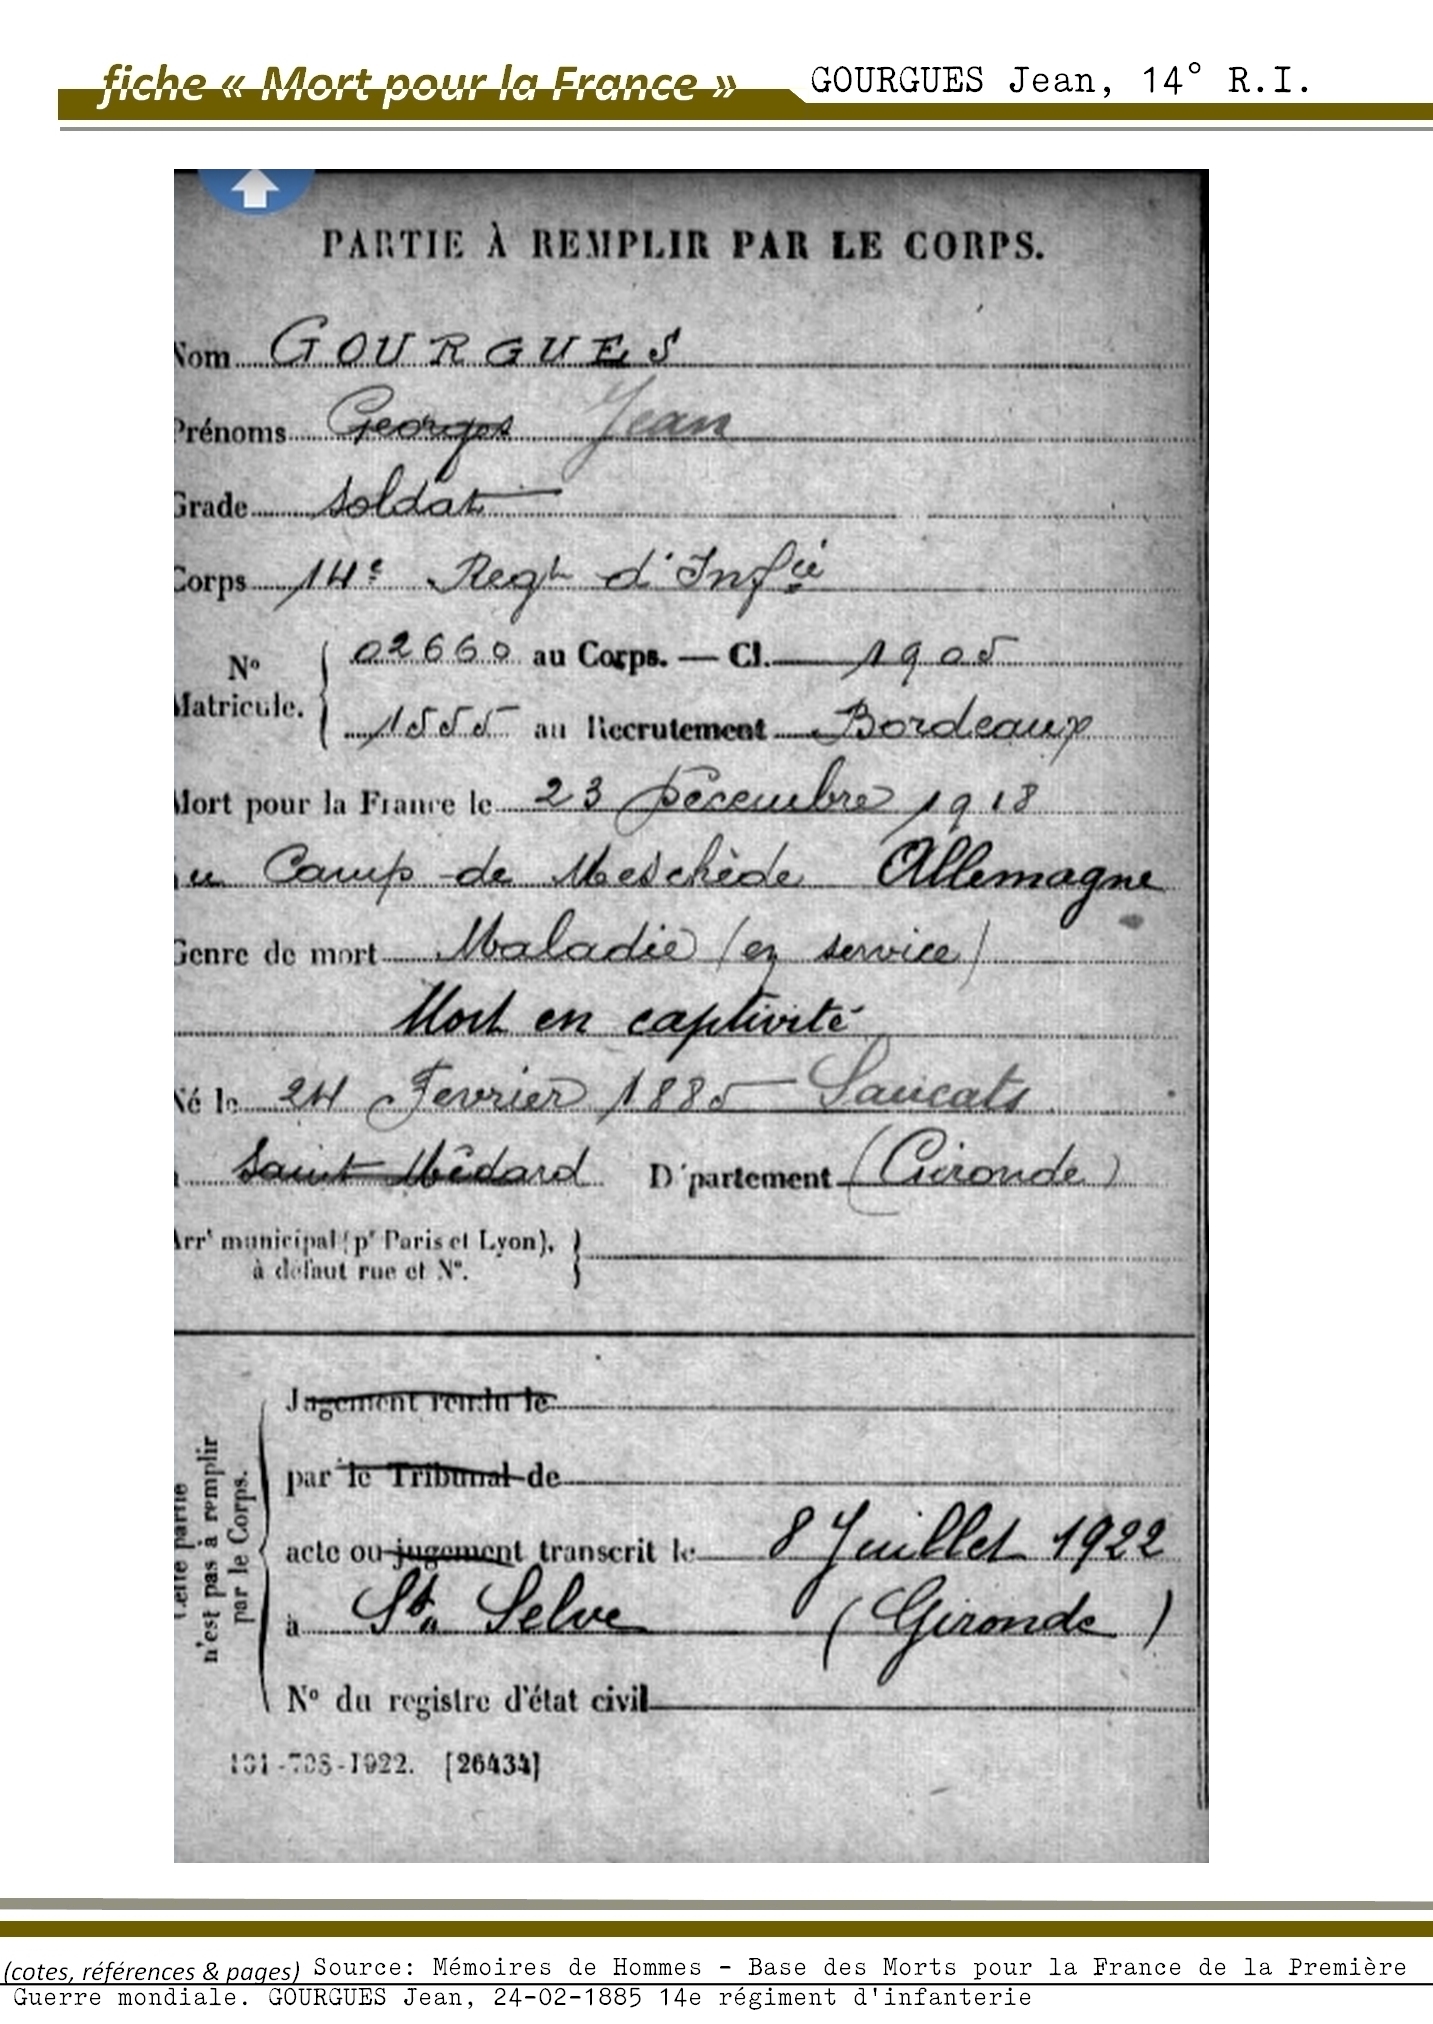 fiche « Mort pour la France » GOURGUES Jean, 14° R.I.
PARTIE À REMPLIR PAR LE CORPS.
Nom GOURGUES
Prénoms Georges Jean
Grade soldat
Corps 14e Regt d'Infie
No Matricule. 02660 au Corps. — Cl. 1905
1555 au Recrutement Bordeaux
Mort pour la France le 23 Décembre 1918
au Camp de Meschède Allemagne
Genre de mort Maladie (en service)
Mort en captivité
Né le 24 Fevrier 1885 Saucats
à Saint-Médard Département (Gironde)
Arrt municipal (pr Paris et Lyon),
à défaut rue et No.
Cette partie
n'est pas à remplir
par le Corps.
Jugement rendu le
par le Tribunal de
acte ou jugement transcrit le 8 Juillet 1922
à Ste Selve (Gironde)
No du registre d'état civil
101-708-1922. [26434]
(cotes, références & pages) Source: Mémoires de Hommes - Base des Morts pour la France de la Première
Guerre mondiale. GOURGUES Jean, 24-02-1885 14e régiment d'infanterie